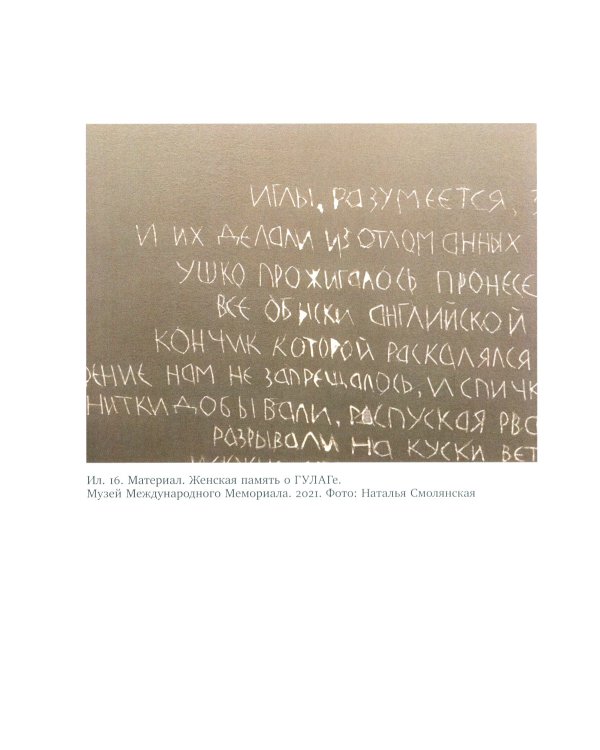 ИГЛЫ, РАЗУМЕЕТСЯ, З
И ИХ ДЕЛАЛИ ИЗ ОТЛОМАННЫХ
УШКО ПРОЖИГАЛОСЬ ПРОНЕСЕ
ВСЕ ОБЫСКИ АНГЛИЙСКОЙ
КОНЧИК КОТОРОЙ РАСКАЛЯЛСЯ
РЕНИЕ НАМ НЕ ЗАПРЕЩАЛОСЬ, И СПИЧК
НИТКИ ДОБЫВАЛИ, РАСПУСКАЯ РВА
РАЗРЫВАЛИ НА КУСКИ ВЕТ
Ил. 16. Материал. Женская память о ГУЛАГе.
Музей Международного Мемориала. 2021. Фото: Наталья Смолянская